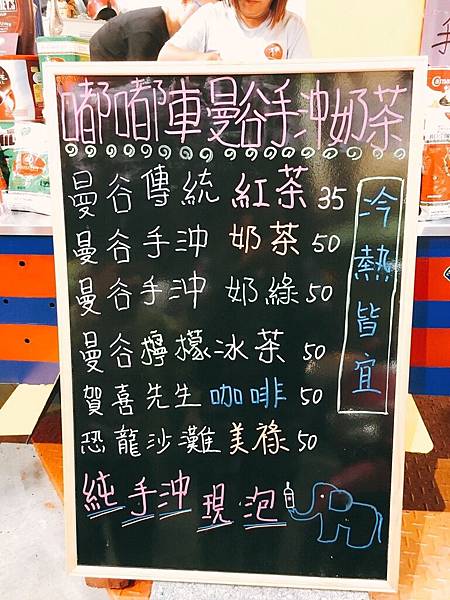 嘟嘟車曼谷手沖奶茶
曼谷傳統 紅茶 35
曼谷手沖 奶茶 50
曼谷手沖 奶綠 50
曼谷檸檬冰茶 50
賀喜先生 咖啡 50
恐龍沙灘美祿 50
冷熱皆宜
純手沖現泡